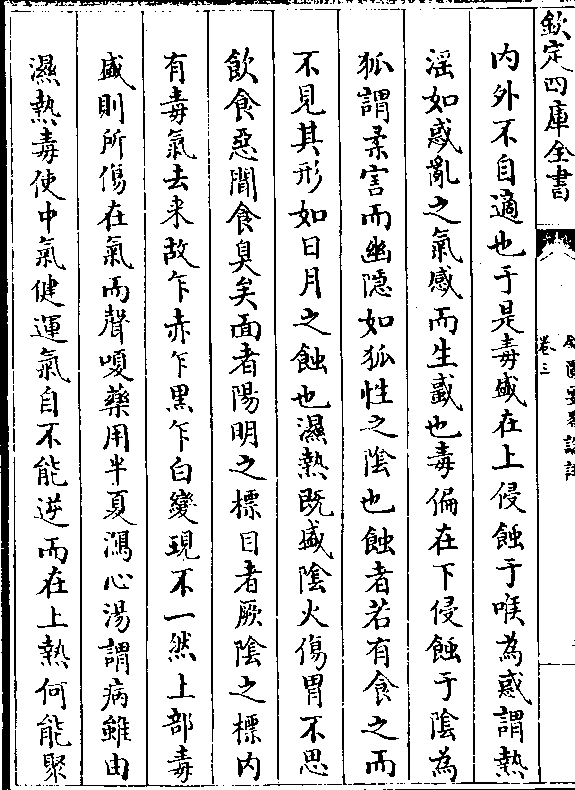 欽定四庫全書
卷三
内外不自適也于是毒盛在上侵蝕于喉為惑謂熱
淫如惑亂之氣感而生蜮也毒偏在下侵蝕于陰為
狐謂柔害而幽隱如狐性之陰也蝕者若有食之而
不見其形如日月之蝕也濕熱既盛陰火傷胃不思
飲食惡聞食臭矣面者陽明之標目者厥陰之標内
有毒氣去来故乍赤乍黒乍白變現不一然上部毒
盛則所傷在氣而聲嗄藥用半夏瀉心湯謂病雖由
濕熱毒使中氣健運氣自不能逆而在上熱何能聚